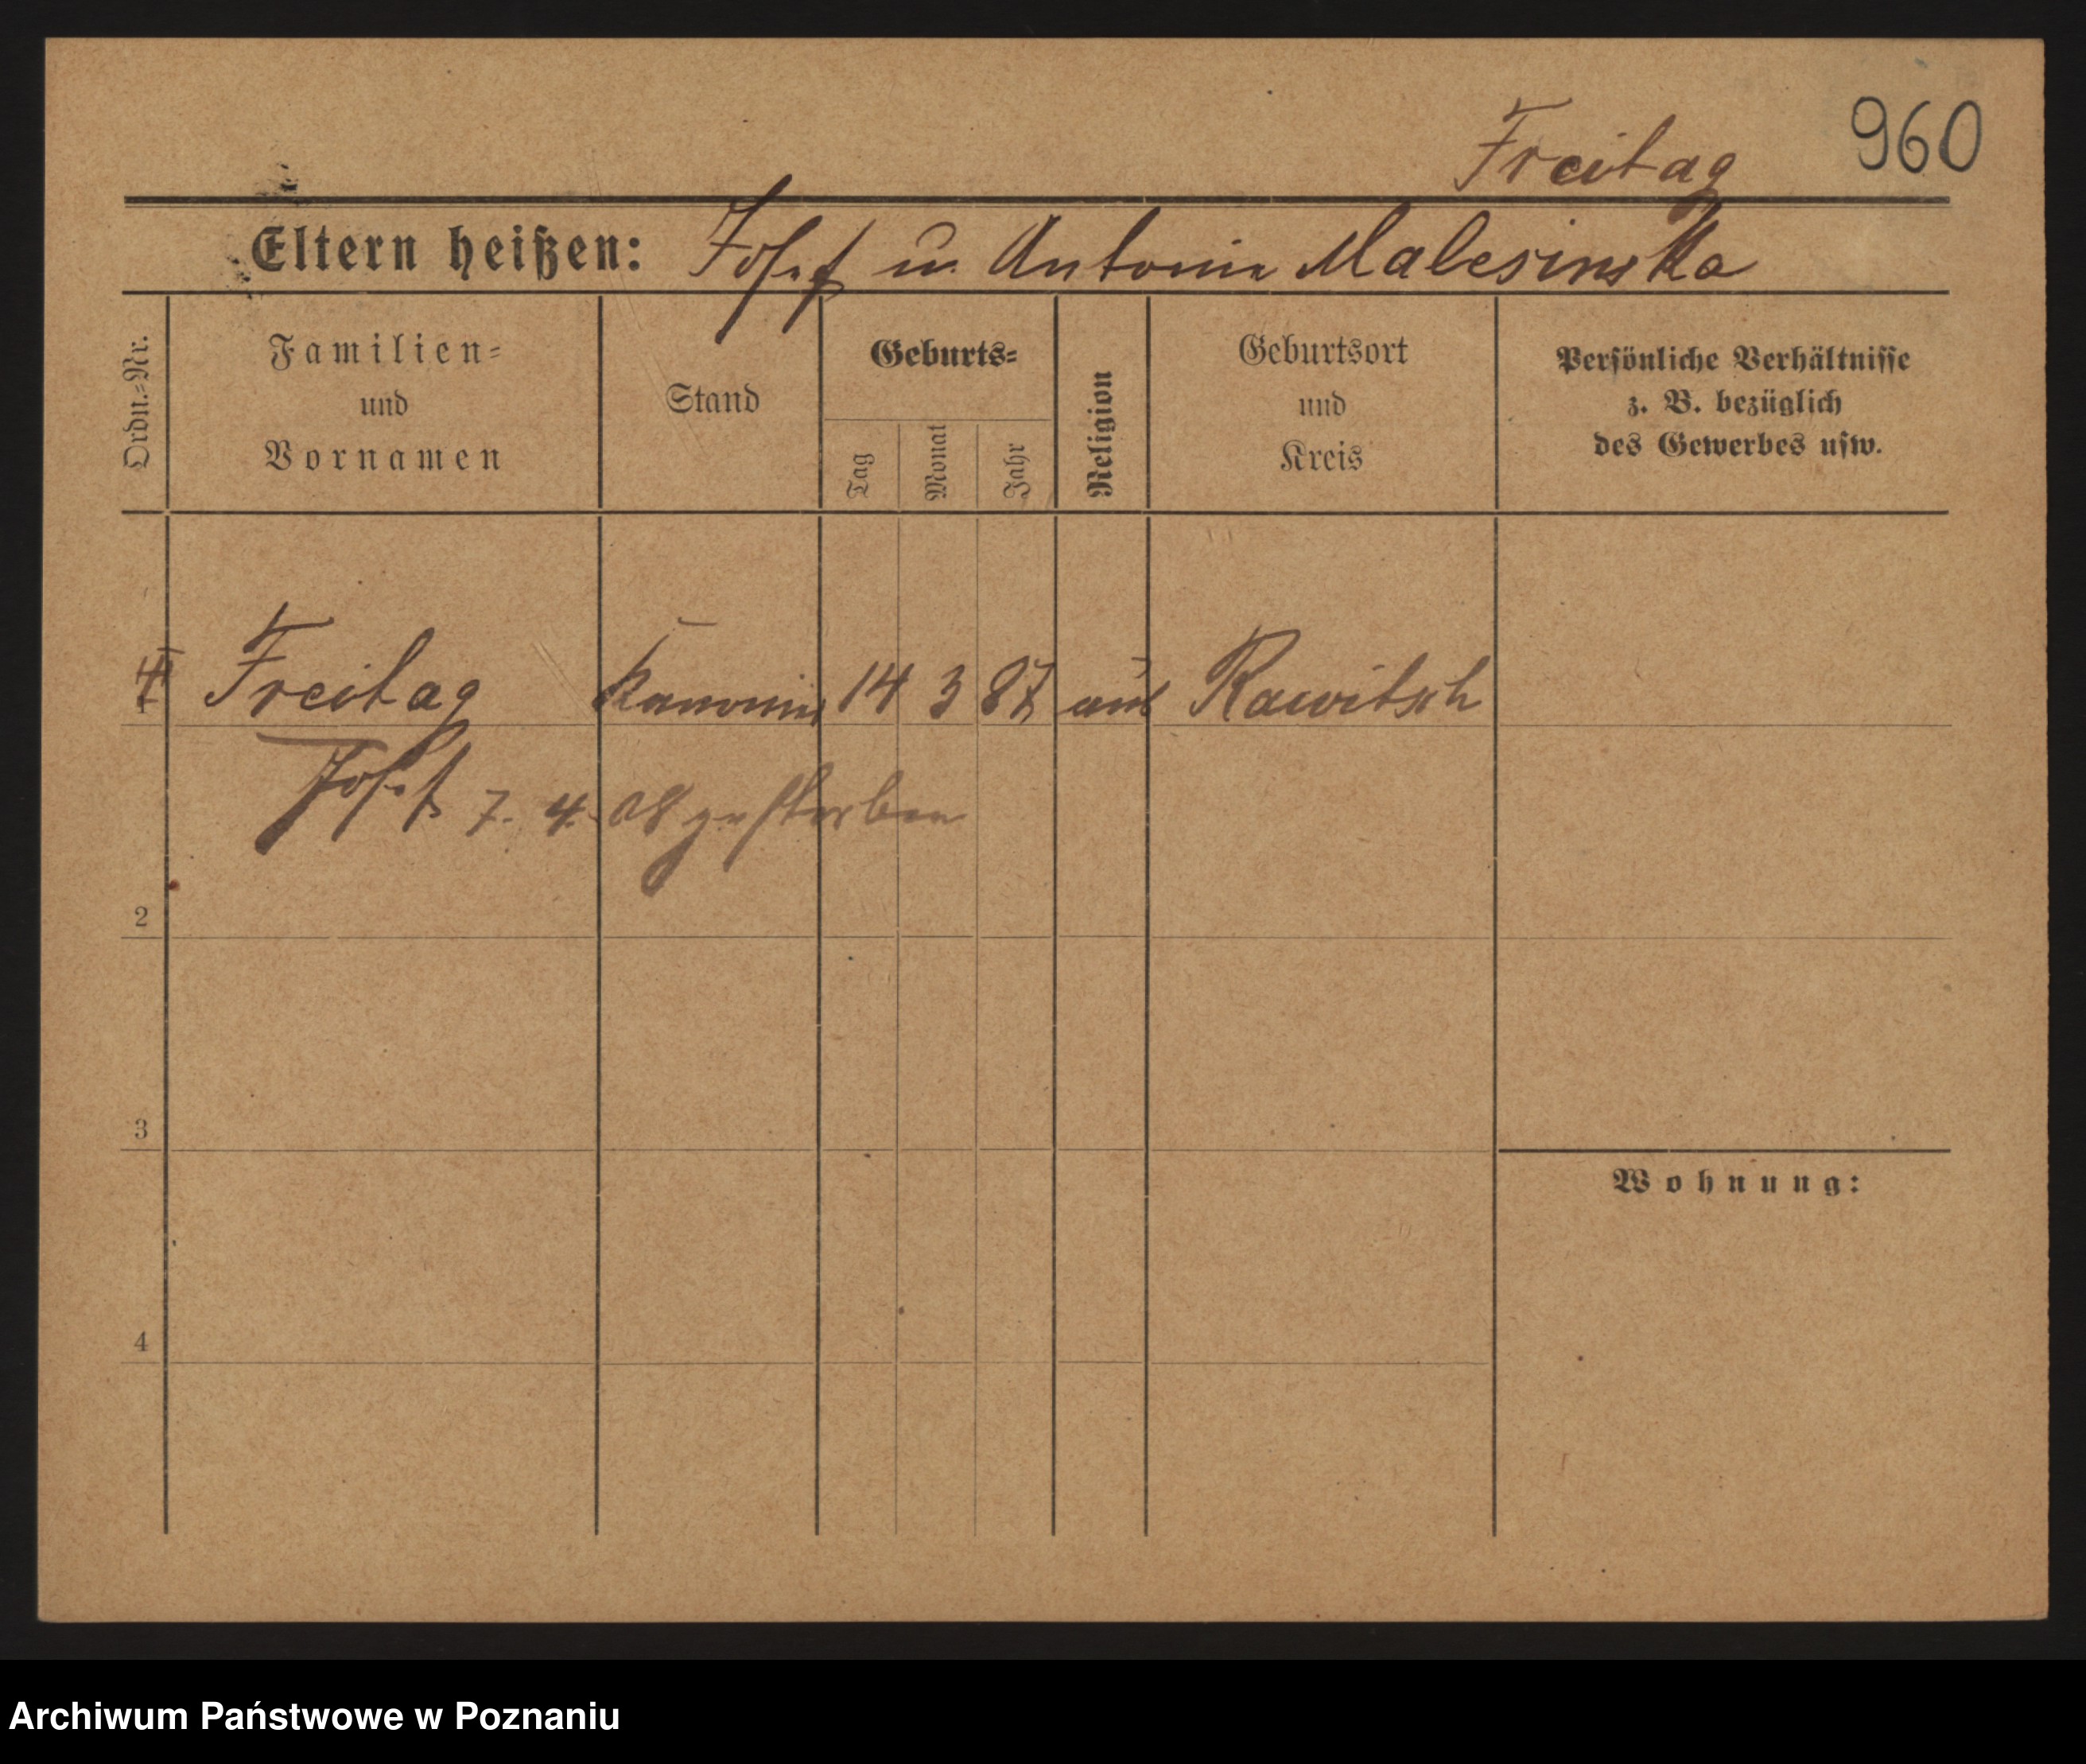 960
Freitag
Eltern heißen: Josef u. Antonie Malesinska
Ordn.=Nr.
Familien=
und
Vornamen
Stand
Geburts=
Tag
Monat
Jahr
Religion
Geburtsort
und
Kreis
Persönliche Verhältnisse
z. B. bezüglich
des Gewerbes usw.
1 Freitag 14 3 87 Rawitsch
Josef 7. 4. 08 gestorben
2
3
Wohnung:
4
Archiwum Państwowe w Poznaniu